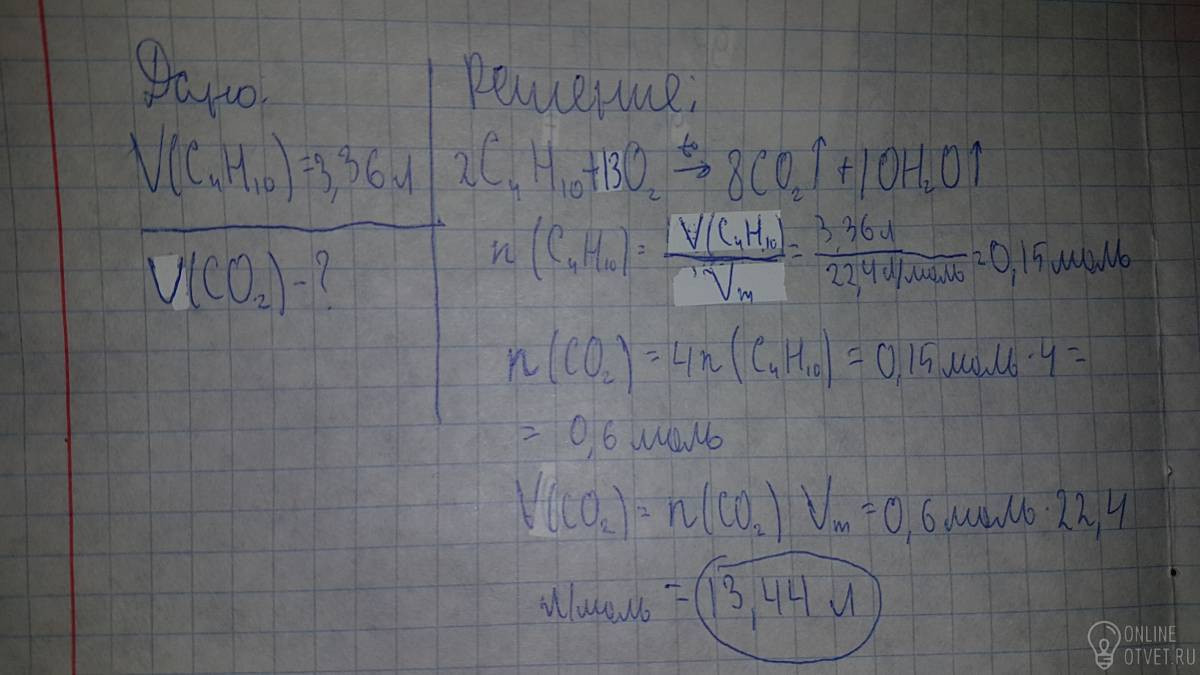 Дано:
V(C₄H₁₀)=3,36 л
V(CO₂)-?
Решение:
2C₄H₁₀+13O₂ t° → 8CO₂↑+10H₂O↑
n(C₄H₁₀)= V(C₄H₁₀)/Vₘ = 3,36 л/22,4 л/моль =0,15 моль
n(CO₂)=4n(C₄H₁₀)=0,15 моль·4=
= 0,6 моль
V(CO₂)=n(CO₂) Vₘ=0,6 моль·22,4
л/моль = 13,44 л
ONLINE
OTVET.RU